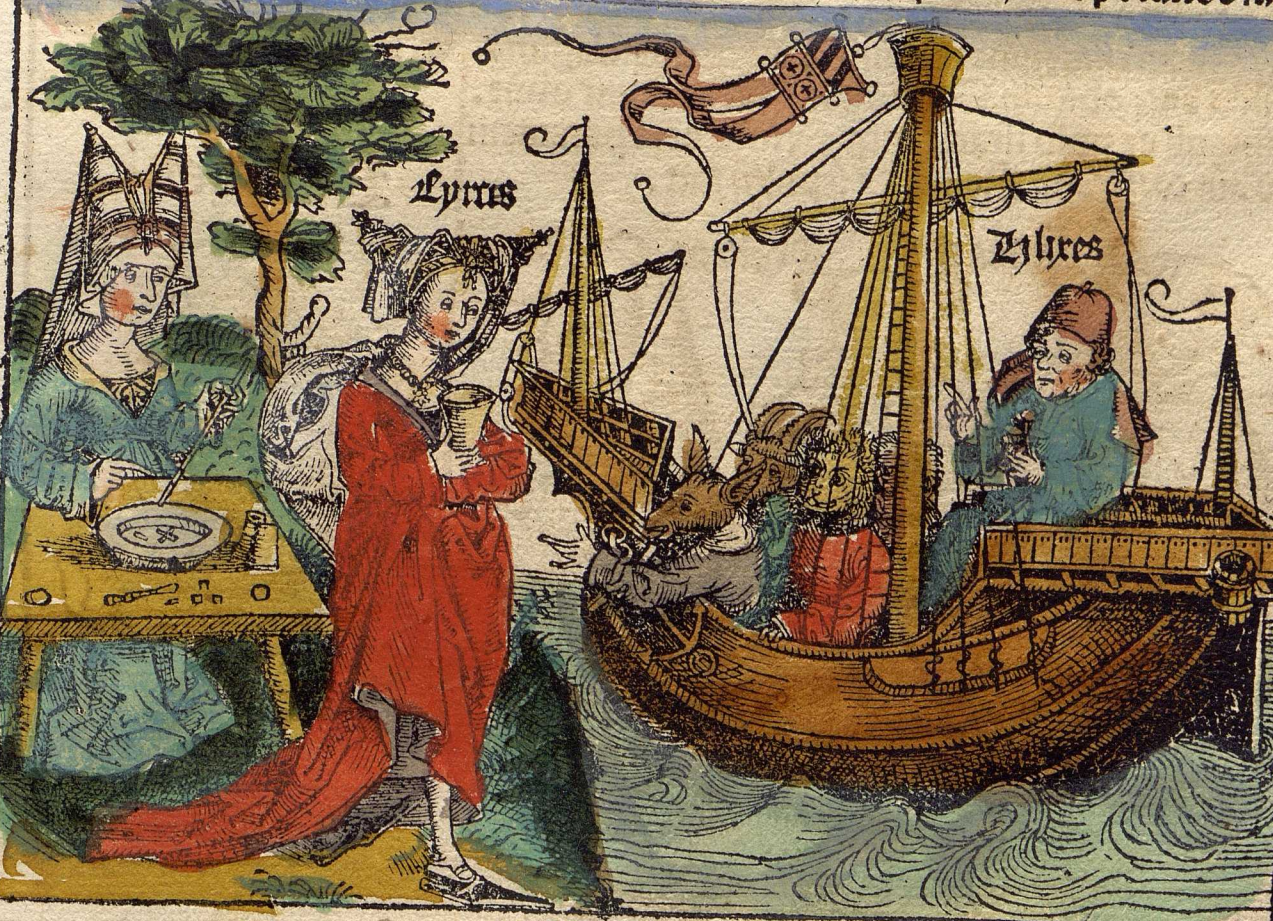 Cyrces
Vlixes